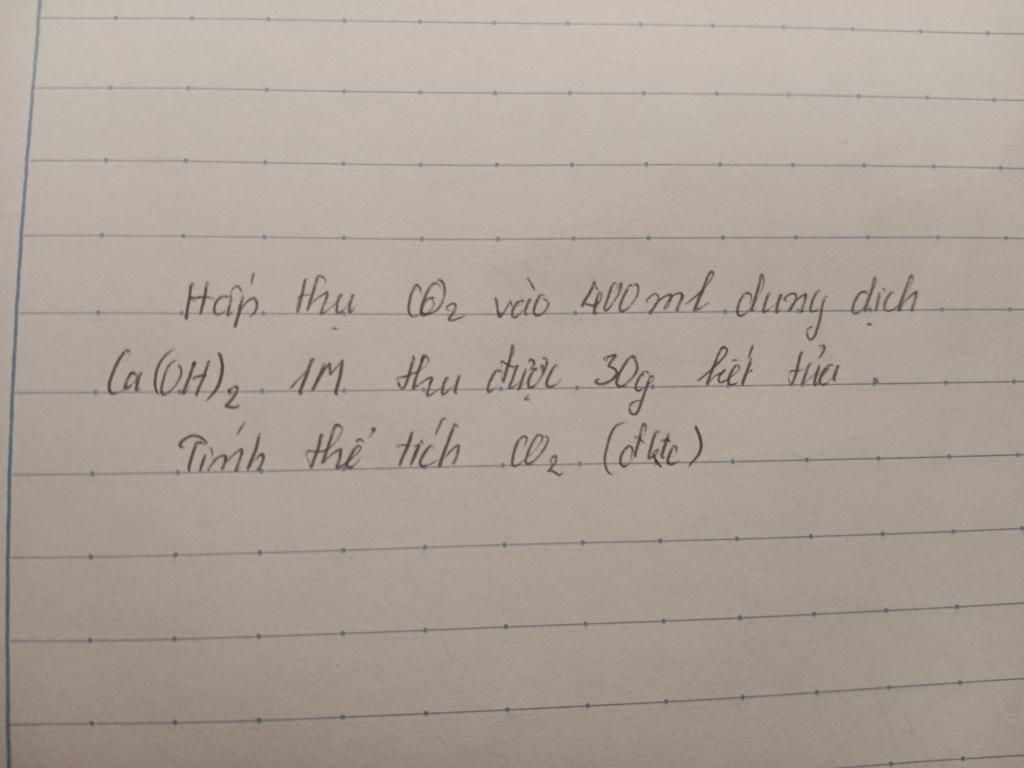 Hấp thụ CO₂ vào 400ml dung dịch
Ca(OH)₂ 1M thu được 30g kết tủa.
Tính thể tích CO₂ (đktc)